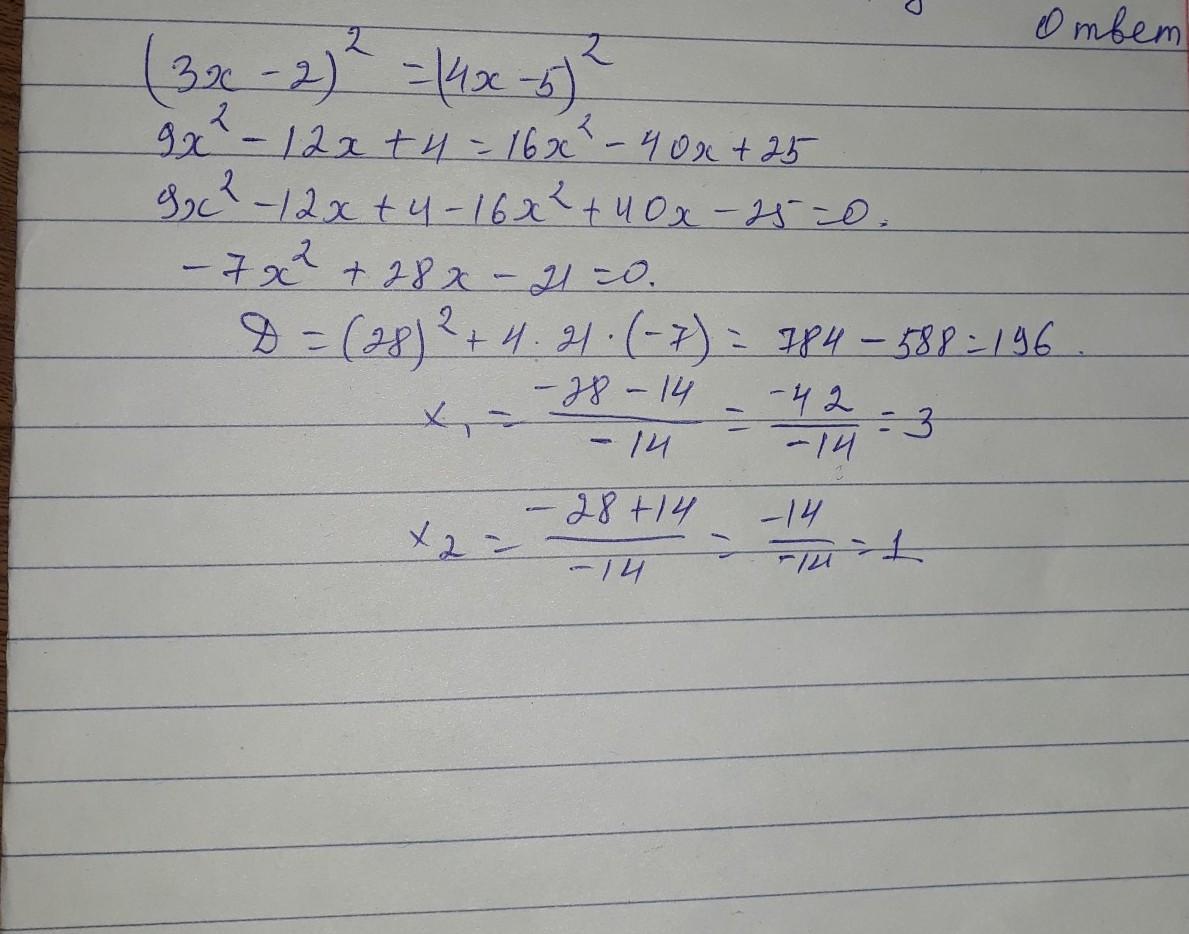 Ответ
(3x - 2)² = (4x - 5)²
9x² - 12x + 4 = 16x² - 40x + 25
9x² - 12x + 4 - 16x² + 40x - 25 = 0.
- 7x² + 28x - 21 = 0.
D = (28)² + 4 · 21 · (-7) = 784 - 588 = 196.
x₁ = (-28 - 14)/(-14) = (-42)/(-14) = 3
x₂ = (-28 + 14)/(-14) = (-14)/(-14) = 1